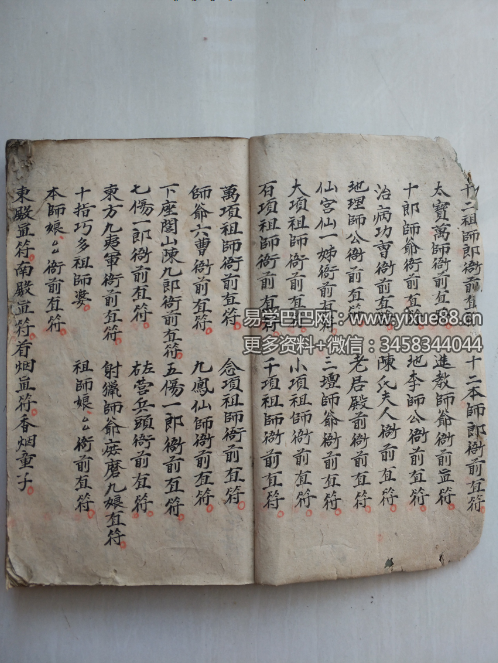 十二祖師郎衙前直符 十二本師郎衙前直符
太寶萬師衙前直符 進教師爺衙前直符
十郎師爺衙前直符 地李師公衙前直符
治病功曹衙前直符 陳氏夫人衙前直符
地理師公衙前直符 老居殿前衙前直符
仙宫仙一姊衙前直符 三壇師爺衙前直符
大項祖師衙前直符 小項祖師衙前直符
百項祖師衙前直符 千項祖師衙前直符
萬項祖師衙前直符 念項祖師衙前直符
師爺六曹衙前直符 九鳳仙師衙前直符
下座閭山陳九郎衙前直符
七傷一郎衙前直符 五傷一郎衙前直符
東方九夷軍衙前直符 左营兵頭衙前直符
十指巧多祖師婆 射獵師爺 九娘直符
本師娘〻衙前直符 祖師娘〻衙前直符
東殿直符南殿直符首烟直符香烟童子
易学巴巴网:www.yixue88.cn
更多资料+微信:3458344044